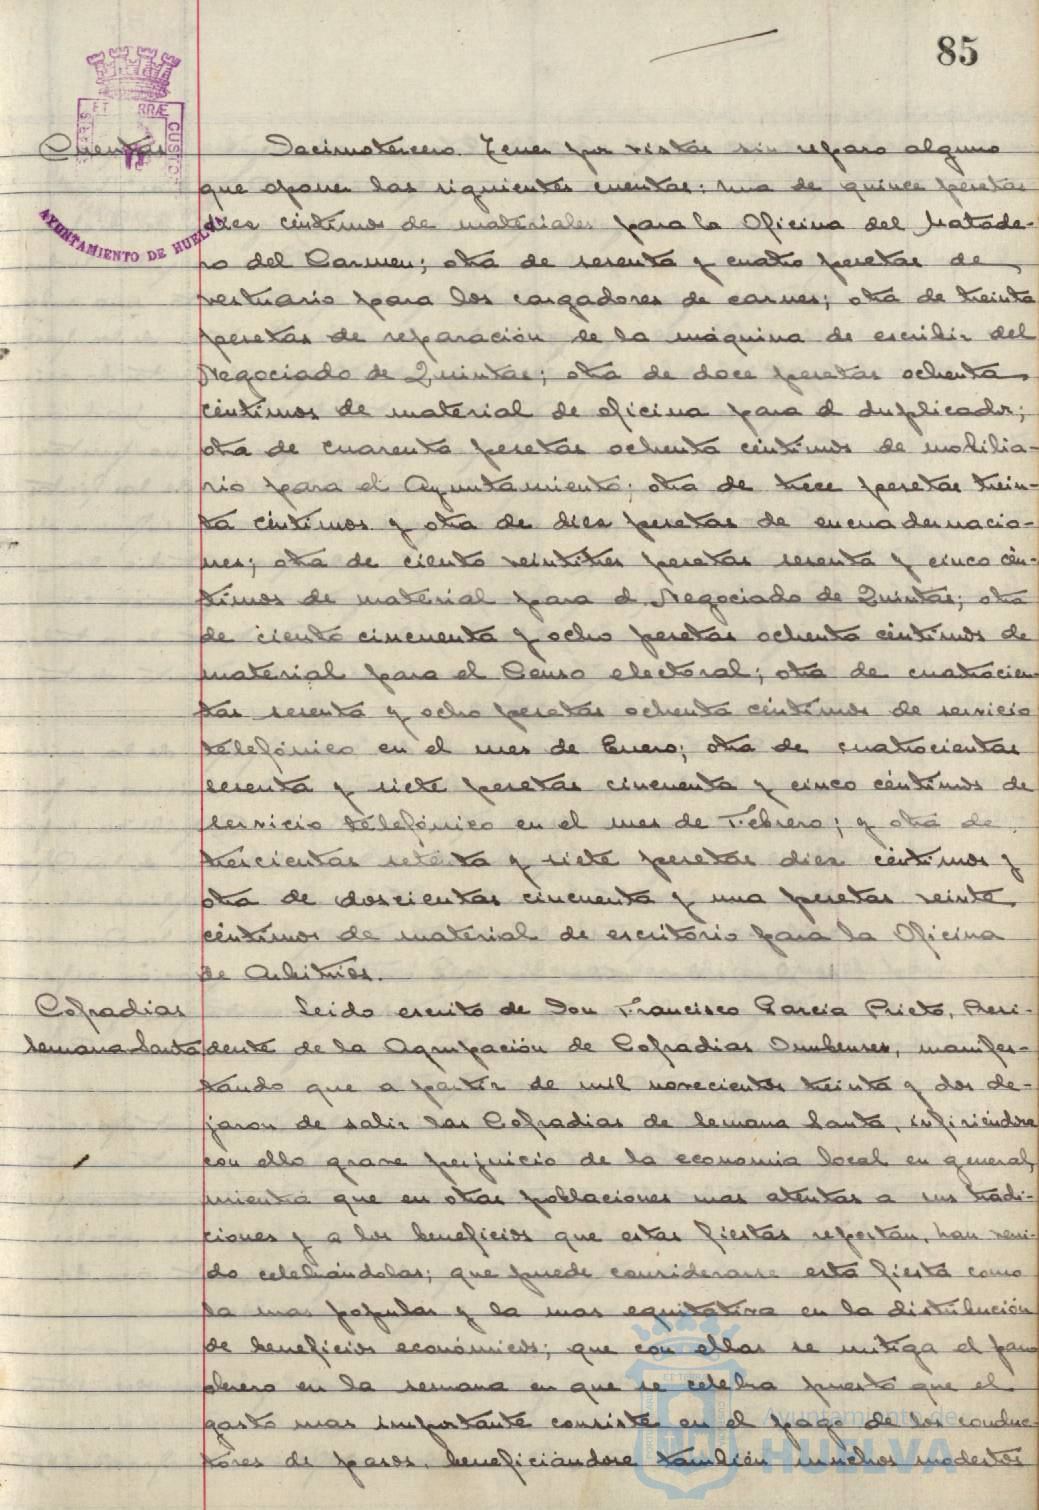 85
PORTUS ET TERRÆ CUSTODIA
AYUNTAMIENTO DE HUELVA
Cuentas
Decimotercero. Tener por vistas sin reparo alguno
que oponer las siguientes cuentas: una de quince pesetas
diez céntimos de materiales para la Oficina del Matade-
ro del Carmen; otra de sesenta y cuatro pesetas de
vestuario para los cargadores de carnes; otra de treinta
pesetas de reparación de la máquina de escribir del
Negociado de Quintas; otra de doce pesetas ochenta
céntimos de material de oficina para el duplicador;
otra de cuarenta pesetas ochenta céntimos de mobilia-
rio para el Ayuntamiento; otra de trece pesetas trein-
ta céntimos y otra de diez pesetas de encuadernacio-
nes; otra de ciento veintitres pesetas sesenta y cinco cén-
timos de material para el Negociado de Quintas; otra
de ciento cincuenta y ocho pesetas ochenta céntimos de
material para el Censo electoral; otra de cuatrocien-
tas sesenta y ocho pesetas ochenta céntimos de servicio
telefónico en el mes de Enero; otra de cuatrocientas
sesenta y siete pesetas cincuenta y cinco céntimos de
servicio telefónico en el mes de Febrero; y otra de
trescientas setenta y siete pesetas diez céntimos y
otra de doscientas cincuenta y una pesetas veinte
céntimos de material de escritorio para la Oficina
de Arbitrios.
Cofradias
Semana Santa
Leido escrito de Don Francisco Garcia Prieto, Presi-
dente de la Agrupación de Cofradias Onubenses, manifes-
tando que a partir de mil novecientos treinta y dos de-
jaron de salir las Cofradias de Semana Santa, infiriéndose
con ello grave perjuicio de la economia local en general,
mientra que en otras poblaciones mas atentas a sus tradi-
ciones y a los beneficios que estas fiestas reportan, han veni-
do celebrándolas; que puede considerarse esta fiesta como
la mas popular y la mas equitativa en la distribución
de beneficios económicos; que con ellas se mitiga el paro
obrero en la semana en que se celebra puesto que el
gasto mas importante consiste en el pago de los conduc-
tores de pasos, beneficiándose también muchos modestos
Ayuntamiento de
HUELVA